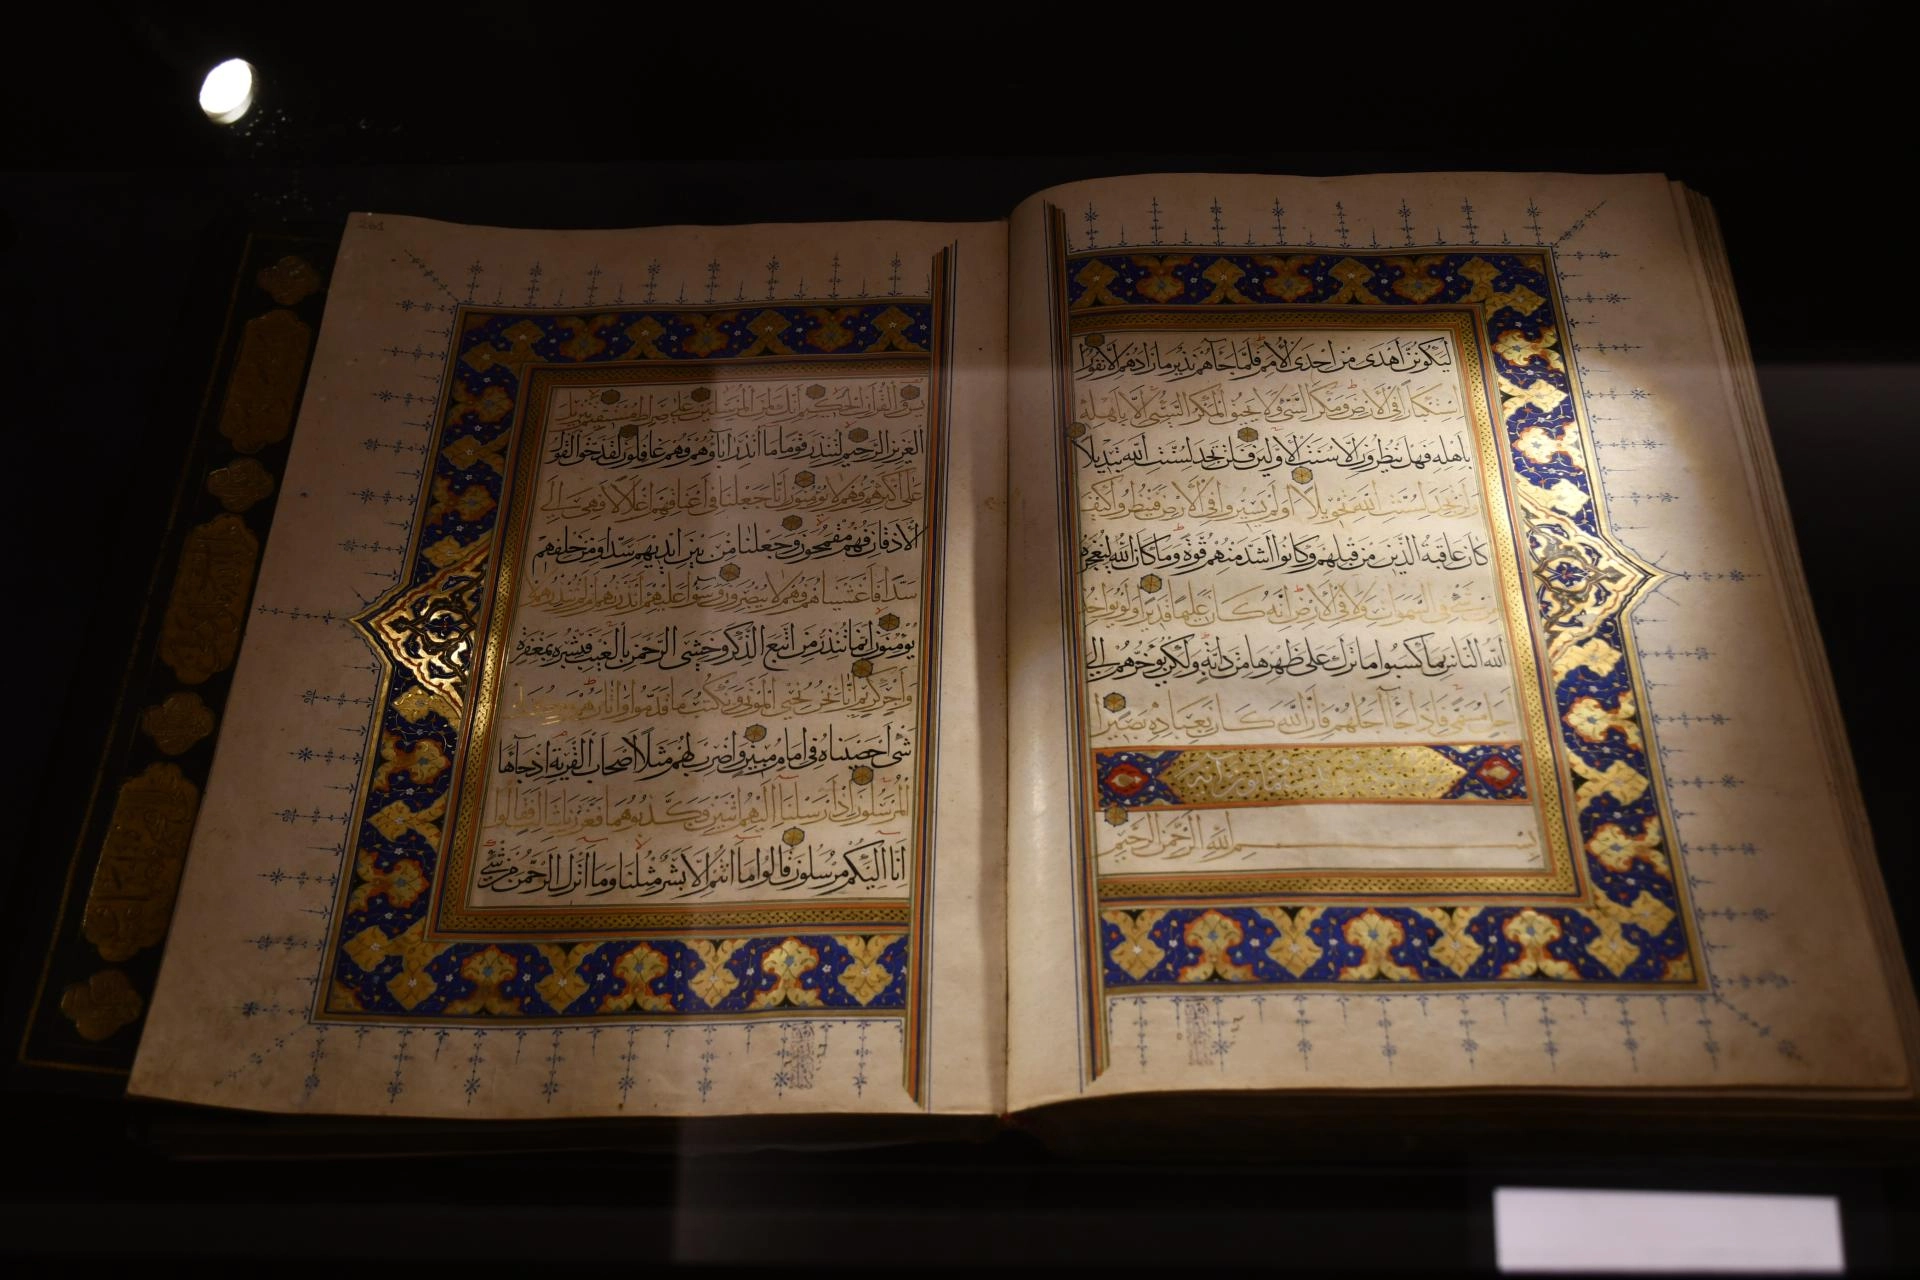 ليكونن أهدى من إحدى الأمم فلما جاءهم نذير ما زادهم إلا نفورا
استكبارا في الأرض ومكر السيئ ولا يحيق المكر السيئ إلا بأهله
بأهله فهل ينظرون إلا سنت الأولين فلن تجد لسنت الله تبديلا
ولن تجد لسنت الله تحويلا أولم يسيروا في الأرض فينظروا كيف
كان عاقبة الذين من قبلهم وكانوا أشد منهم قوة وما كان الله ليعجزه
من شيء في السموات ولا في الأرض إنه كان عليما قديرا ولو يؤاخذ
الله الناس بما كسبوا ما ترك على ظهرها من دابة ولكن يؤخرهم إلى
أجل مسمى فإذا جاء أجلهم فإن الله كان بعباده بصيرا
بسم الله الرحمن الرحيم
يس والقرآن الحكيم إنك لمن المرسلين على صراط مستقيم تنزيل
العزيز الرحيم لتنذر قوما ما أنذر آباؤهم فهم غافلون لقد حق القول
على أكثرهم فهم لا يؤمنون إنا جعلنا في أعناقهم أغلالا فهي إلى
الأذقان فهم مقمحون وجعلنا من بين أيديهم سدا ومن خلفهم
سدا فأغشيناهم فهم لا يبصرون وسواء عليهم أأنذرتهم أم لم تنذرهم لا
يؤمنون إنما تنذر من اتبع الذكر وخشي الرحمن بالغيب فبشره بمغفرة
وأجر كريم إنا نحن نحيي الموتى ونكتب ما قدموا وآثارهم وكل
شيء أحصيناه في إمام مبين واضرب لهم مثلا أصحاب القرية إذ جاءها
المرسلون إذ أرسلنا إليهم اثنين فكذبوهما فعززنا بثالث فقالوا
إنا إليكم مرسلون قالوا ما أنتم إلا بشر مثلنا وما أنزل الرحمن من شيء